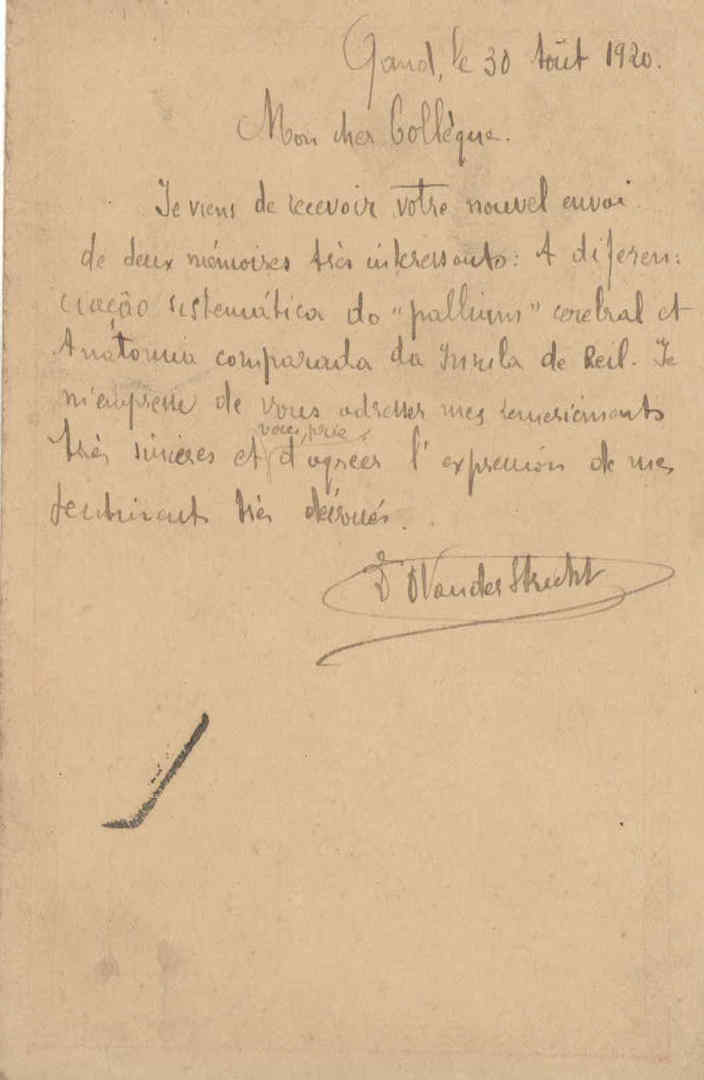 Gand, le 30 Août 1920.
Mon cher Collègue.
Je viens de recevoir votre nouvel envoi
de deux mémoires très intéressants: A diferen:
ciação sistemática do "pallium" cerebral et
Anátomia comparada da Insula de Reil. Je
m'empresse de vous adresser mes remerciments
vous prie
très sincères et d'agréer l'expression de mes
sentiments très dévoués.